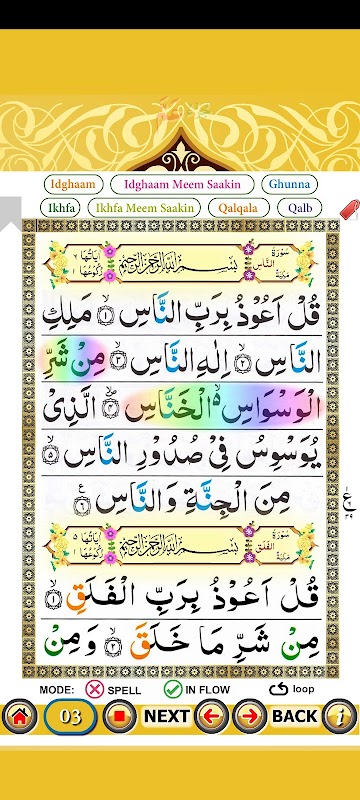 Idghaam Idghaam Meem Saakin Ghunna
Ikhfa Ikhfa Meem Saakin Qalqala Qalb
سُوْرَةُ النَّاسِ مَكِّيَّةٌ بِسْمِ اللّٰهِ الرَّحْمٰنِ الرَّحِيْمِ اٰيَاتُهَا ٦ رُكُوْعُهَا ١
قُلْ اَعُوْذُ بِرَبِّ النَّاسِ ۝١ مَلِكِ
النَّاسِ ۝٢ اِلٰهِ النَّاسِ ۝٣ مِنْ شَرِّ
الْوَسْوَاسِ ۙ الْخَنَّاسِ ۝٤ الَّذِىْ
يُوَسْوِسُ فِىْ صُدُوْرِ النَّاسِ ۝٥
مِنَ الْجِنَّةِ وَالنَّاسِ ۝٦
سُوْرَةُ الْفَلَقِ مَكِّيَّةٌ بِسْمِ اللّٰهِ الرَّحْمٰنِ الرَّحِيْمِ اٰيَاتُهَا ٥ رُكُوْعُهَا ١
قُلْ اَعُوْذُ بِرَبِّ الْفَلَقِ ۝١
مِنْ شَرِّ مَا خَلَقَ ۝٢ وَمِنْ
MODE: SPELL IN FLOW loop
03 NEXT BACK i